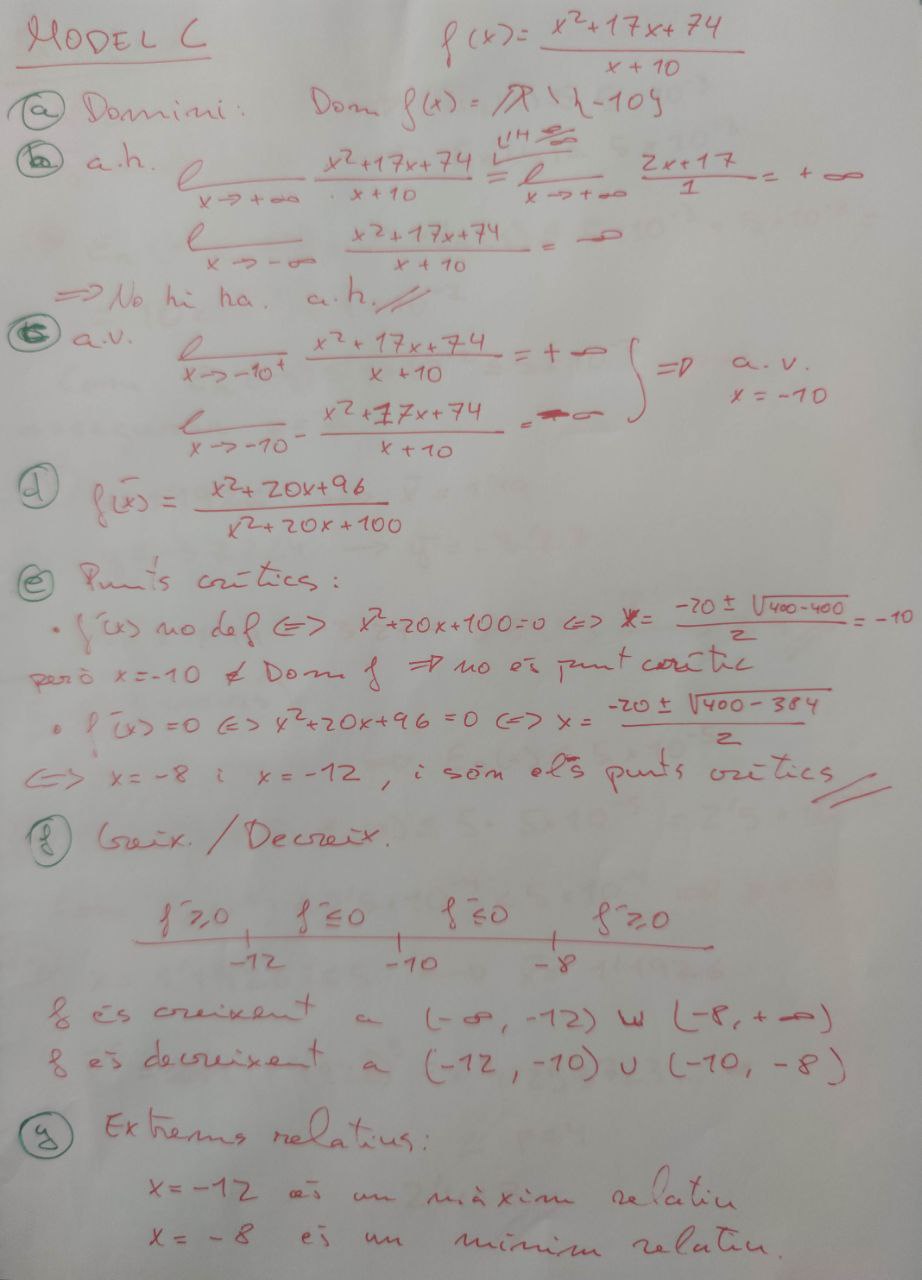 MODEL C f(x) = (x²+17x+74)/(x+10)
(a) Domini: Dom f(x) = ℝ \ {-10}
(b) a.h. l_{x→+∞} (x²+17x+74)/(x+10) = (L'H ∞/∞) l_{x→+∞} (2x+17)/1 = +∞
l_{x→-∞} (x²+17x+74)/(x+10) = -∞
⇒ No hi ha. a.h. //
(c) a.v. l_{x→-10⁺} (x²+17x+74)/(x+10) = +∞
l_{x→-10⁻} (x²+17x+74)/(x+10) = -∞ } ⇒ a.v. x = -10
(d) f'(x) = (x²+20x+96)/(x²+20x+100)
(e) Punts crítics:
• f'(x) no def ⇔ x²+20x+100=0 ⇔ x = (-20 ± √(400-400))/2 = -10
però x=-10 ∉ Dom f ⇒ no és punt crític
• f'(x) = 0 ⇔ x²+20x+96 = 0 ⇔ x = (-20 ± √(400-384))/2
⇔ x = -8 i x = -12, i són els punts crítics //
(f) Creix. / Decreix.
f'≥0 f'≤0 f'≤0 f'≥0
-12 -10 -8
f és creixent a (-∞, -12) ∪ (-8, +∞)
f és decreixent a (-12, -10) ∪ (-10, -8)
(g) Extrems relatius:
x = -12 és un màxim relatiu
x = -8 és un mínim relatiu.